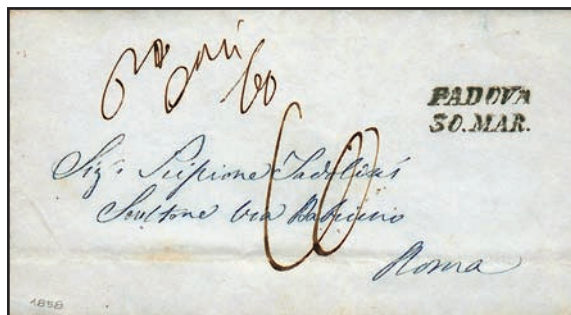 60
PADOVA
30. MAR.
60
Sigr Scipione Tadolini
Scultore Via Babuino
Roma
1858